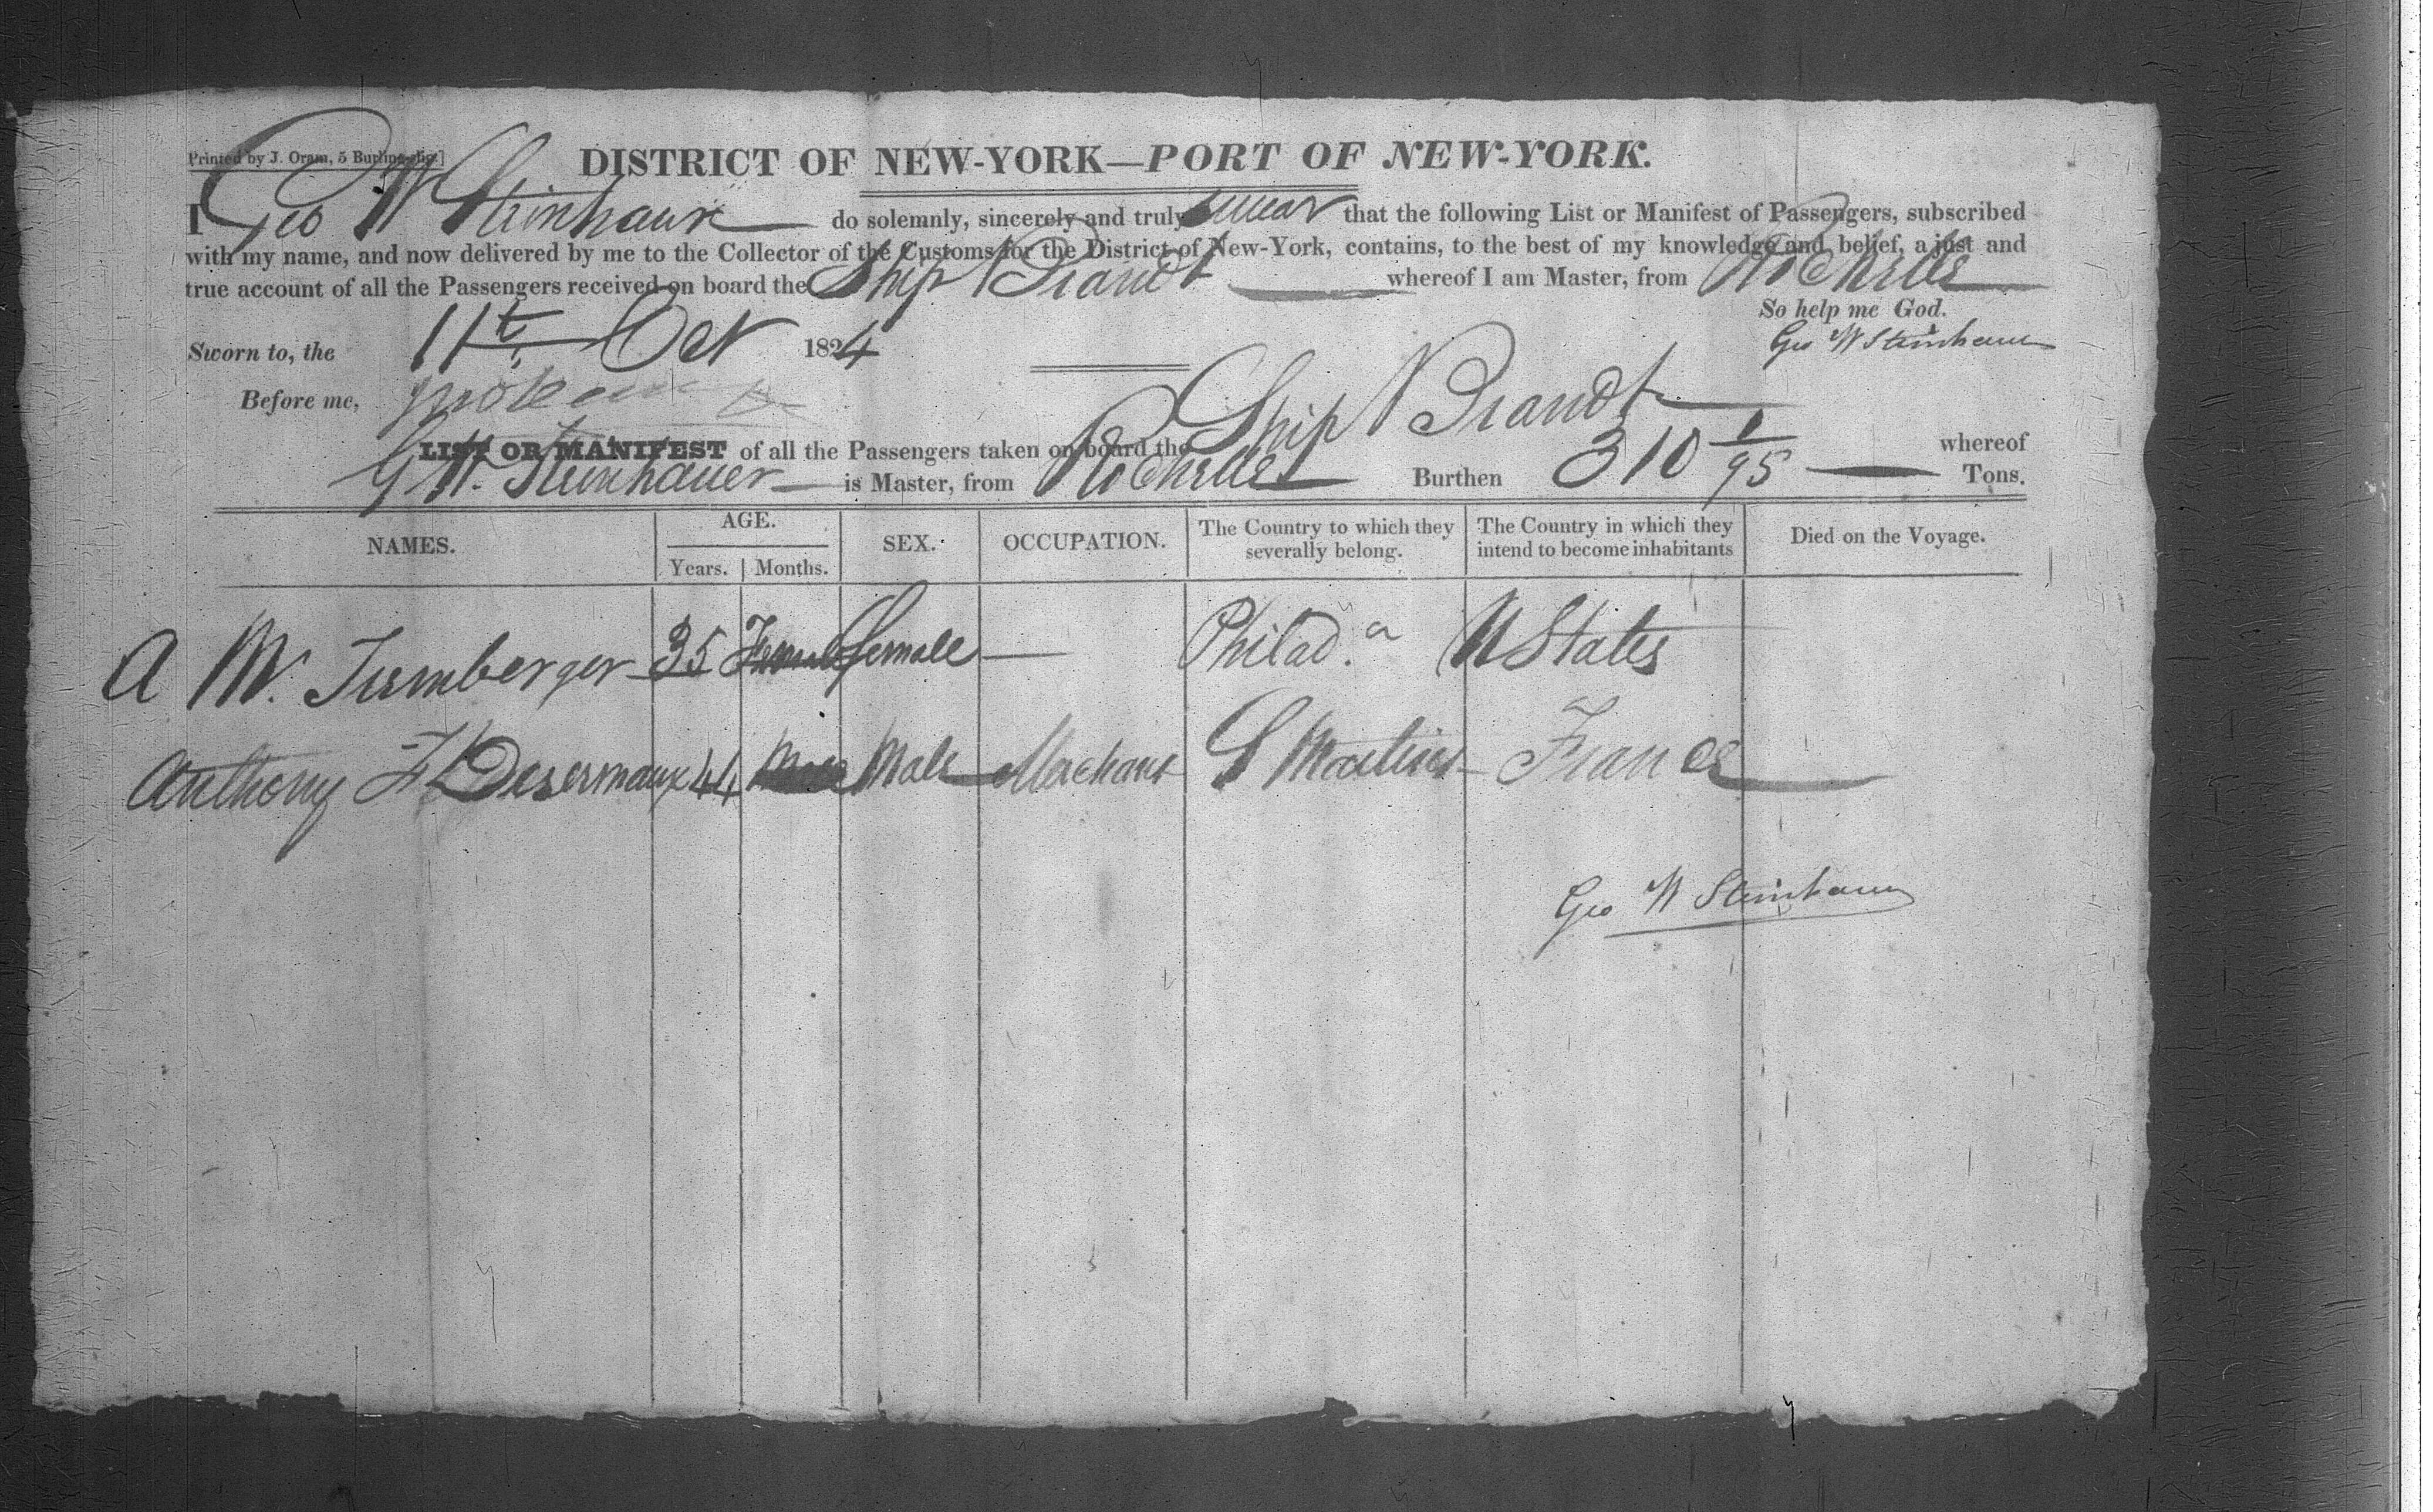 Printed by J. Oram, 5 Burling-slip.]
DISTRICT OF NEW-YORK—PORT OF NEW-YORK.
I Geo W Steinhauer do solemnly, sincerely and truly swear that the following List or Manifest of Passengers, subscribed
with my name, and now delivered by me to the Collector of the Customs for the District of New-York, contains, to the best of my knowledge and belief, a just and
true account of all the Passengers received on board the Ship Brandt whereof I am Master, from Rochelle
So help me God.
Sworn to, the 11th Oct 1824
Geo W Steinhauer
Before me,
LIST OR MANIFEST of all the Passengers taken on board the Ship Brandt whereof
G W. Steinhauer is Master, from Rochelle Burthen 310 1/95 Tons.
NAMES. AGE. SEX. OCCUPATION. The Country to which they severally belong. The Country in which they intend to become inhabitants Died on the Voyage.
Years. Months.
A M. Turmberger 35 Female female — Philad.a U States
Anthony F Desermaux 44 Male Male Merchant S Martins France
Geo W Steinhauer